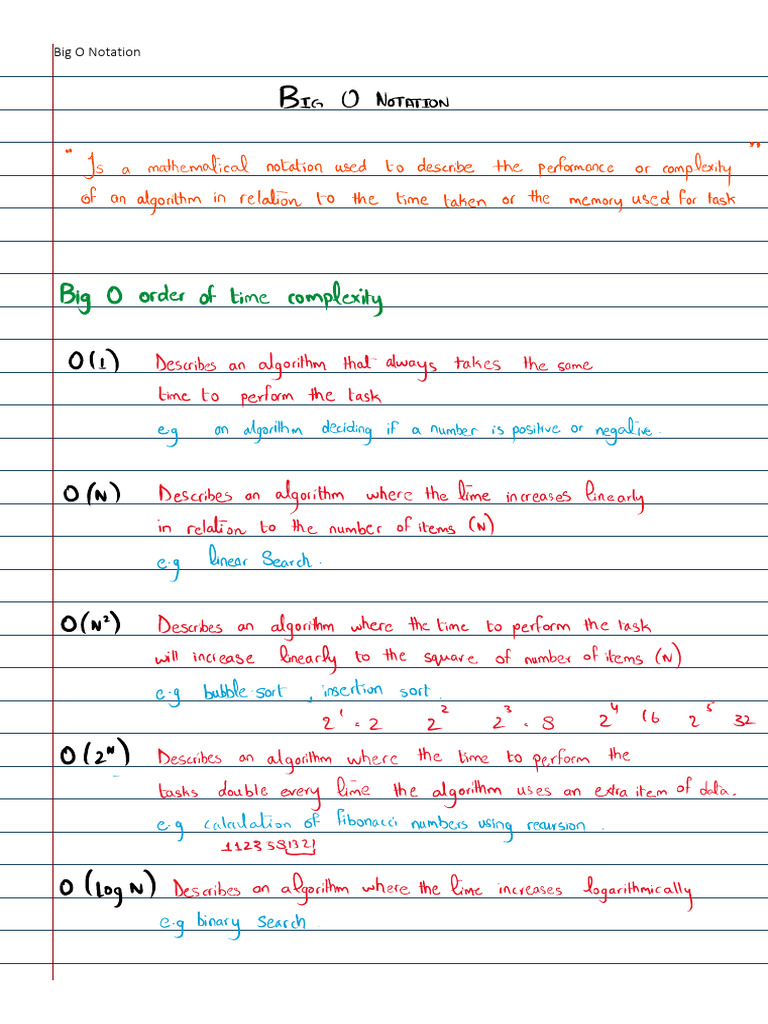 Big O Notation
BIG O NOTATION
" Is a mathematical notation used to describe the performance or complexity "
of an algorithm in relation to the time taken or the memory used for task
Big O order of time complexity
O(1) Describes an algorithm that always takes the same
time to perform the task
e.g an algorithm deciding if a number is positive or negative.
O(N) Describes an algorithm where the time increases linearly
in relation to the number of items (N)
e.g linear Search.
O(N²) Describes an algorithm where the time to perform the task
will increase linearly to the square of number of items (N)
e.g bubble sort, insertion sort.
2¹ = 2 2² 2³ = 8 2⁴ 16 2⁵ 32
O(2ᴺ) Describes an algorithm where the time to perform the
tasks double every time the algorithm uses an extra item of data.
e.g calculation of Fibonacci numbers using recursion.
1 1 2 3 5 8 13 21
O(log N) Describes an algorithm where the time increases logarithmically
e.g binary search